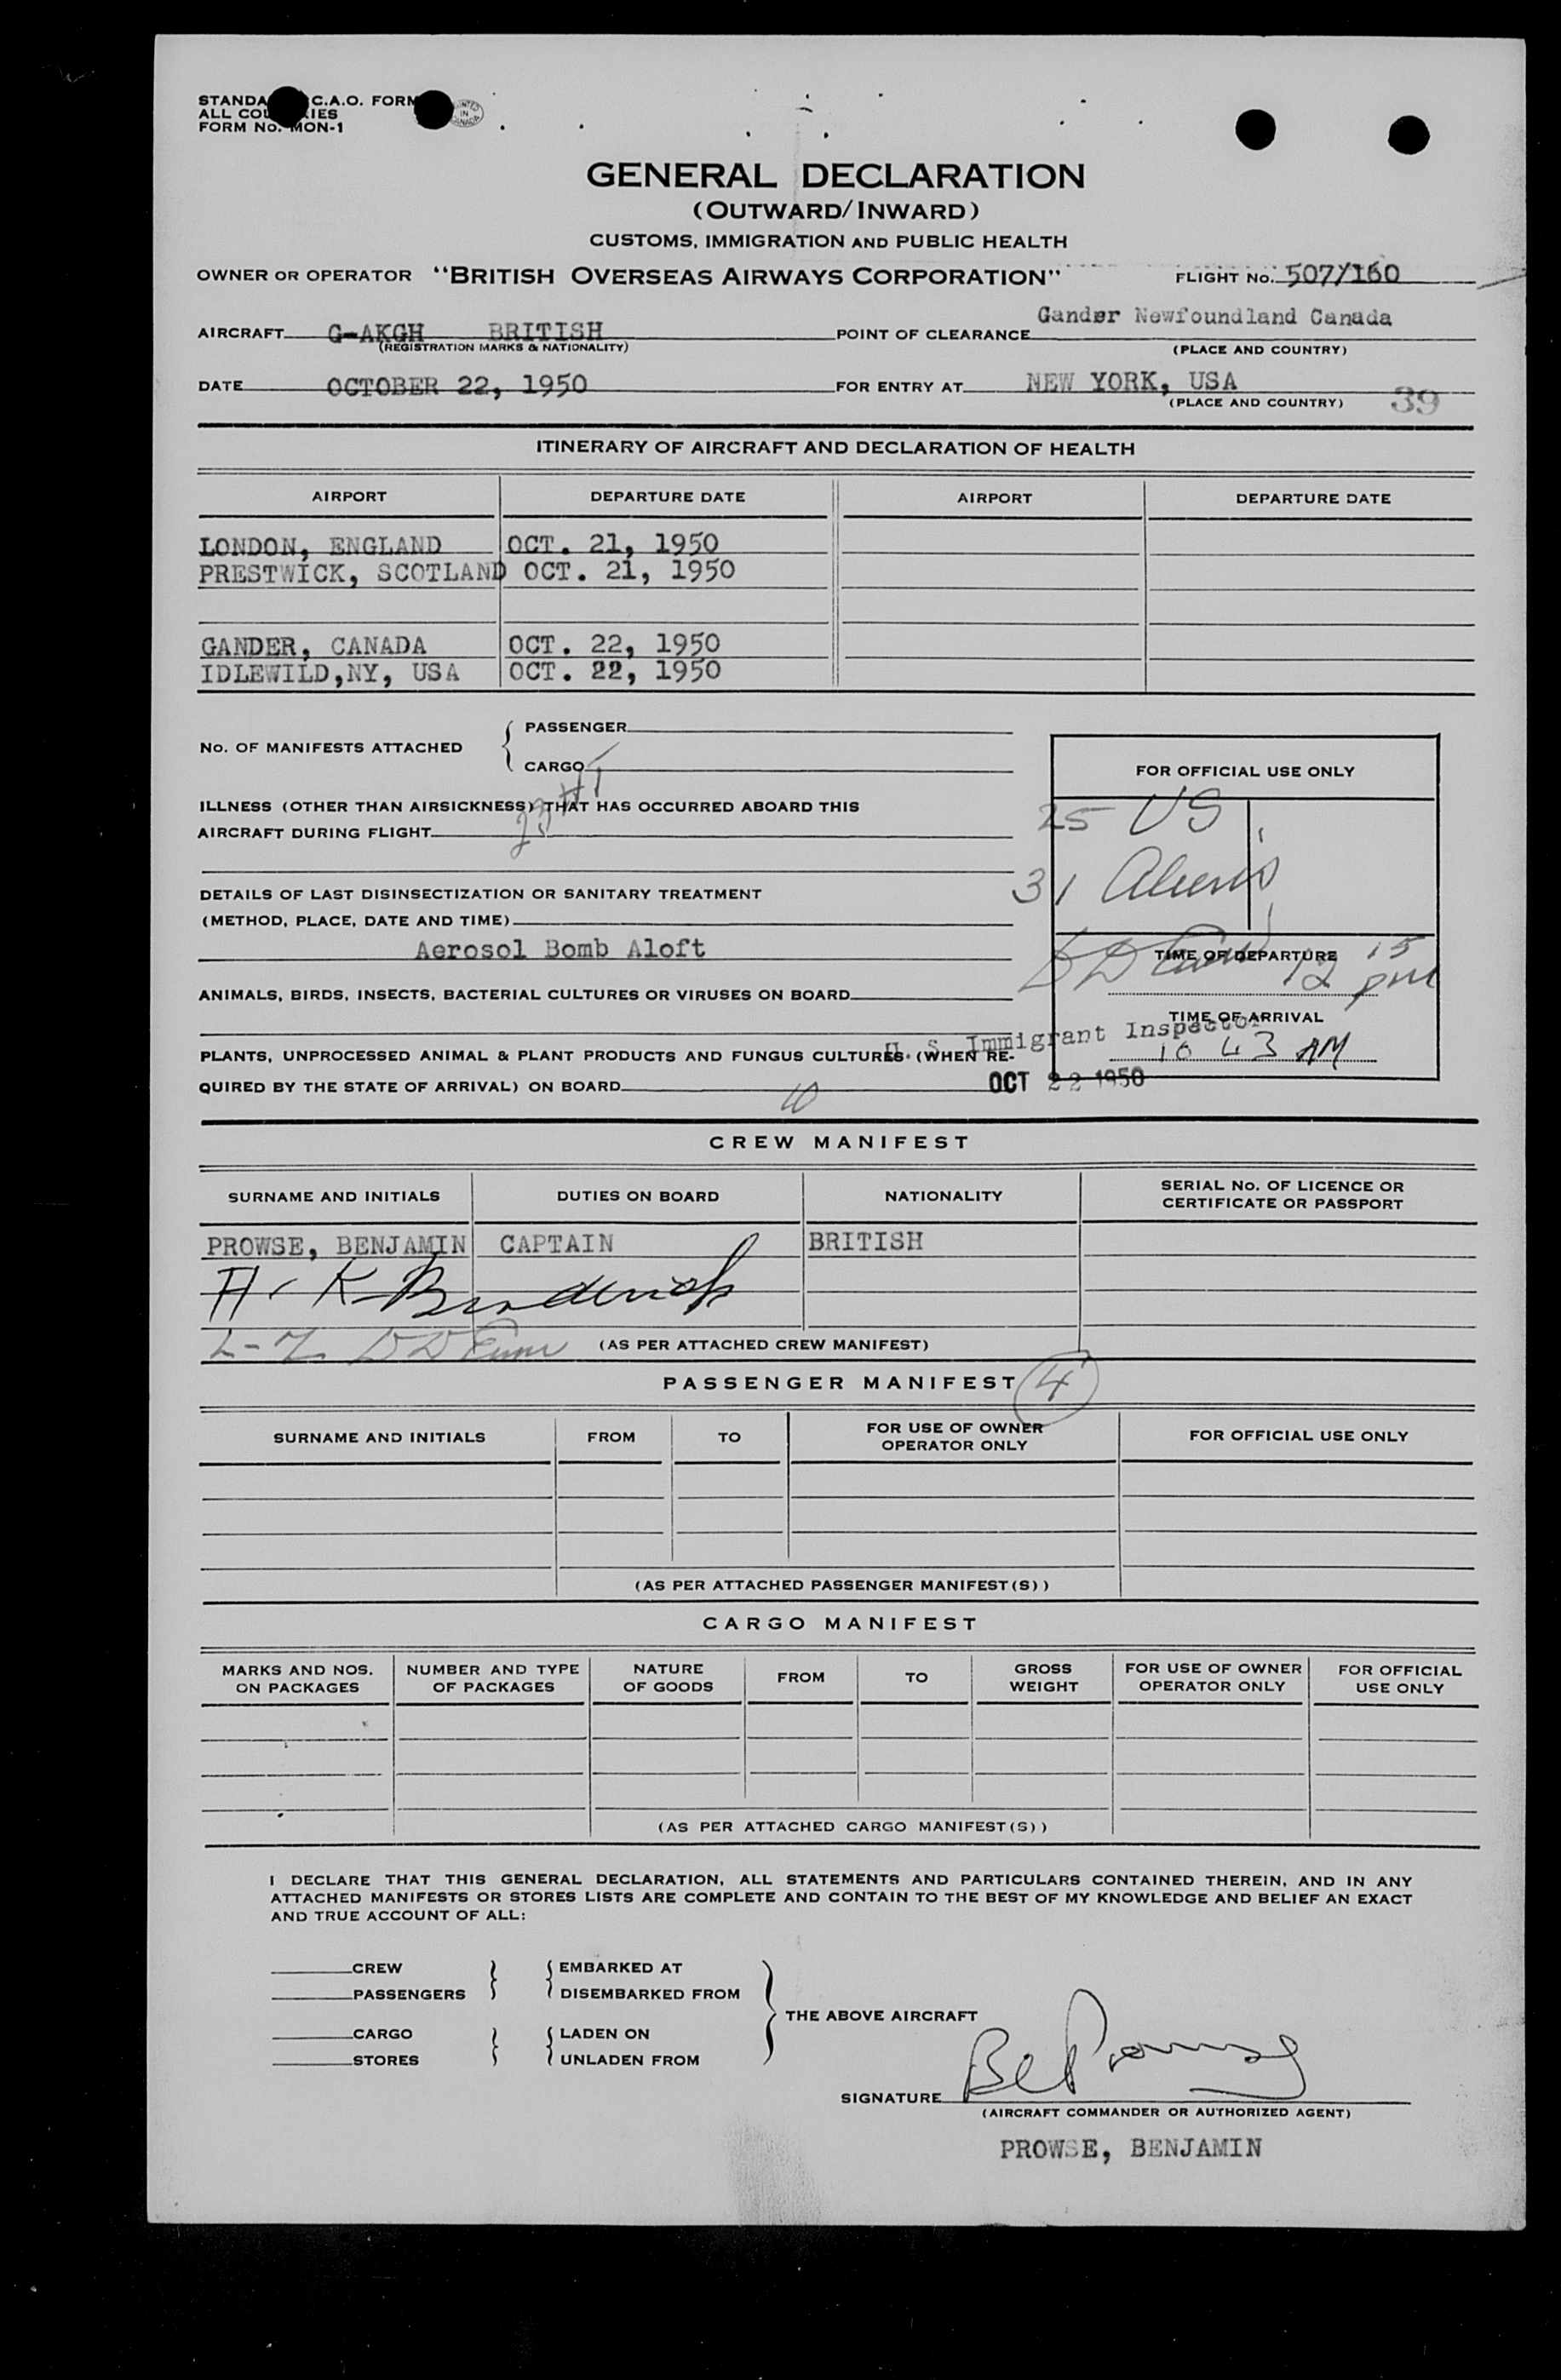 STANDA C.A.O. FORM
ALL COU RIES
FORM No. MON-1
PRINTED IN CANADA
GENERAL DECLARATION
(OUTWARD/INWARD)
CUSTOMS, IMMIGRATION AND PUBLIC HEALTH
OWNER OR OPERATOR "BRITISH OVERSEAS AIRWAYS CORPORATION" FLIGHT No. 507/160
AIRCRAFT G-AKGH BRITISH POINT OF CLEARANCE Gander Newfoundland Canada
(REGISTRATION MARKS & NATIONALITY) (PLACE AND COUNTRY)
DATE OCTOBER 22, 1950 FOR ENTRY AT NEW YORK, USA
(PLACE AND COUNTRY) 39
ITINERARY OF AIRCRAFT AND DECLARATION OF HEALTH
AIRPORT DEPARTURE DATE AIRPORT DEPARTURE DATE
LONDON, ENGLAND OCT. 21, 1950
PRESTWICK, SCOTLAND OCT. 21, 1950
GANDER, CANADA OCT. 22, 1950
IDLEWILD,NY, USA OCT. 22, 1950
No. OF MANIFESTS ATTACHED
PASSENGER
CARGO
FOR OFFICIAL USE ONLY
ILLNESS (OTHER THAN AIRSICKNESS) THAT HAS OCCURRED ABOARD THIS
AIRCRAFT DURING FLIGHT
25 US
31 Aliens
DETAILS OF LAST DISINSECTIZATION OR SANITARY TREATMENT
(METHOD, PLACE, DATE AND TIME)
Aerosol Bomb Aloft
TIME OF DEPARTURE
12 15 pm
ANIMALS, BIRDS, INSECTS, BACTERIAL CULTURES OR VIRUSES ON BOARD
TIME OF ARRIVAL
10 43 AM
U. S. Immigrant Inspector
PLANTS, UNPROCESSED ANIMAL & PLANT PRODUCTS AND FUNGUS CULTURES (WHEN RE-
QUIRED BY THE STATE OF ARRIVAL) ON BOARD
OCT 22 1950
10
CREW MANIFEST
SURNAME AND INITIALS DUTIES ON BOARD NATIONALITY SERIAL No. OF LICENCE OR
CERTIFICATE OR PASSPORT
PROWSE, BENJAMIN CAPTAIN BRITISH
(AS PER ATTACHED CREW MANIFEST)
PASSENGER MANIFEST 4
SURNAME AND INITIALS FROM TO FOR USE OF OWNER
OPERATOR ONLY FOR OFFICIAL USE ONLY
(AS PER ATTACHED PASSENGER MANIFEST(S))
CARGO MANIFEST
MARKS AND NOS.
ON PACKAGES NUMBER AND TYPE
OF PACKAGES NATURE
OF GOODS FROM TO GROSS
WEIGHT FOR USE OF OWNER
OPERATOR ONLY FOR OFFICIAL
USE ONLY
(AS PER ATTACHED CARGO MANIFEST(S))
I DECLARE THAT THIS GENERAL DECLARATION, ALL STATEMENTS AND PARTICULARS CONTAINED THEREIN, AND IN ANY
ATTACHED MANIFESTS OR STORES LISTS ARE COMPLETE AND CONTAIN TO THE BEST OF MY KNOWLEDGE AND BELIEF AN EXACT
AND TRUE ACCOUNT OF ALL:
CREW EMBARKED AT
PASSENGERS DISEMBARKED FROM
THE ABOVE AIRCRAFT
CARGO LADEN ON
STORES UNLADEN FROM
SIGNATURE
(AIRCRAFT COMMANDER OR AUTHORIZED AGENT)
PROWSE, BENJAMIN